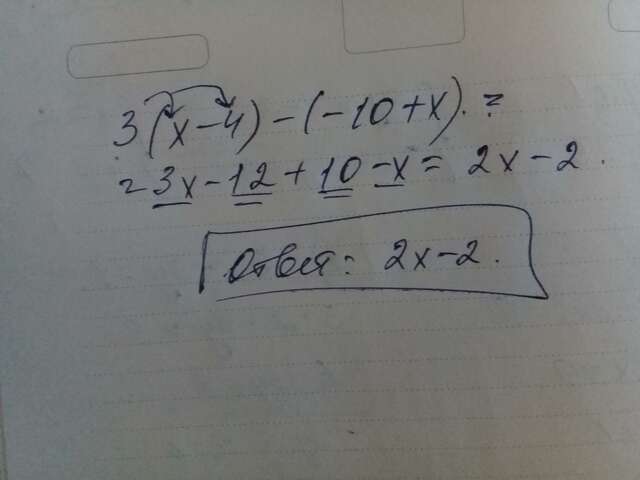 3(x-4)-(-10+x). =
=3x-12+10-x= 2x-2.
Ответ: 2x-2.